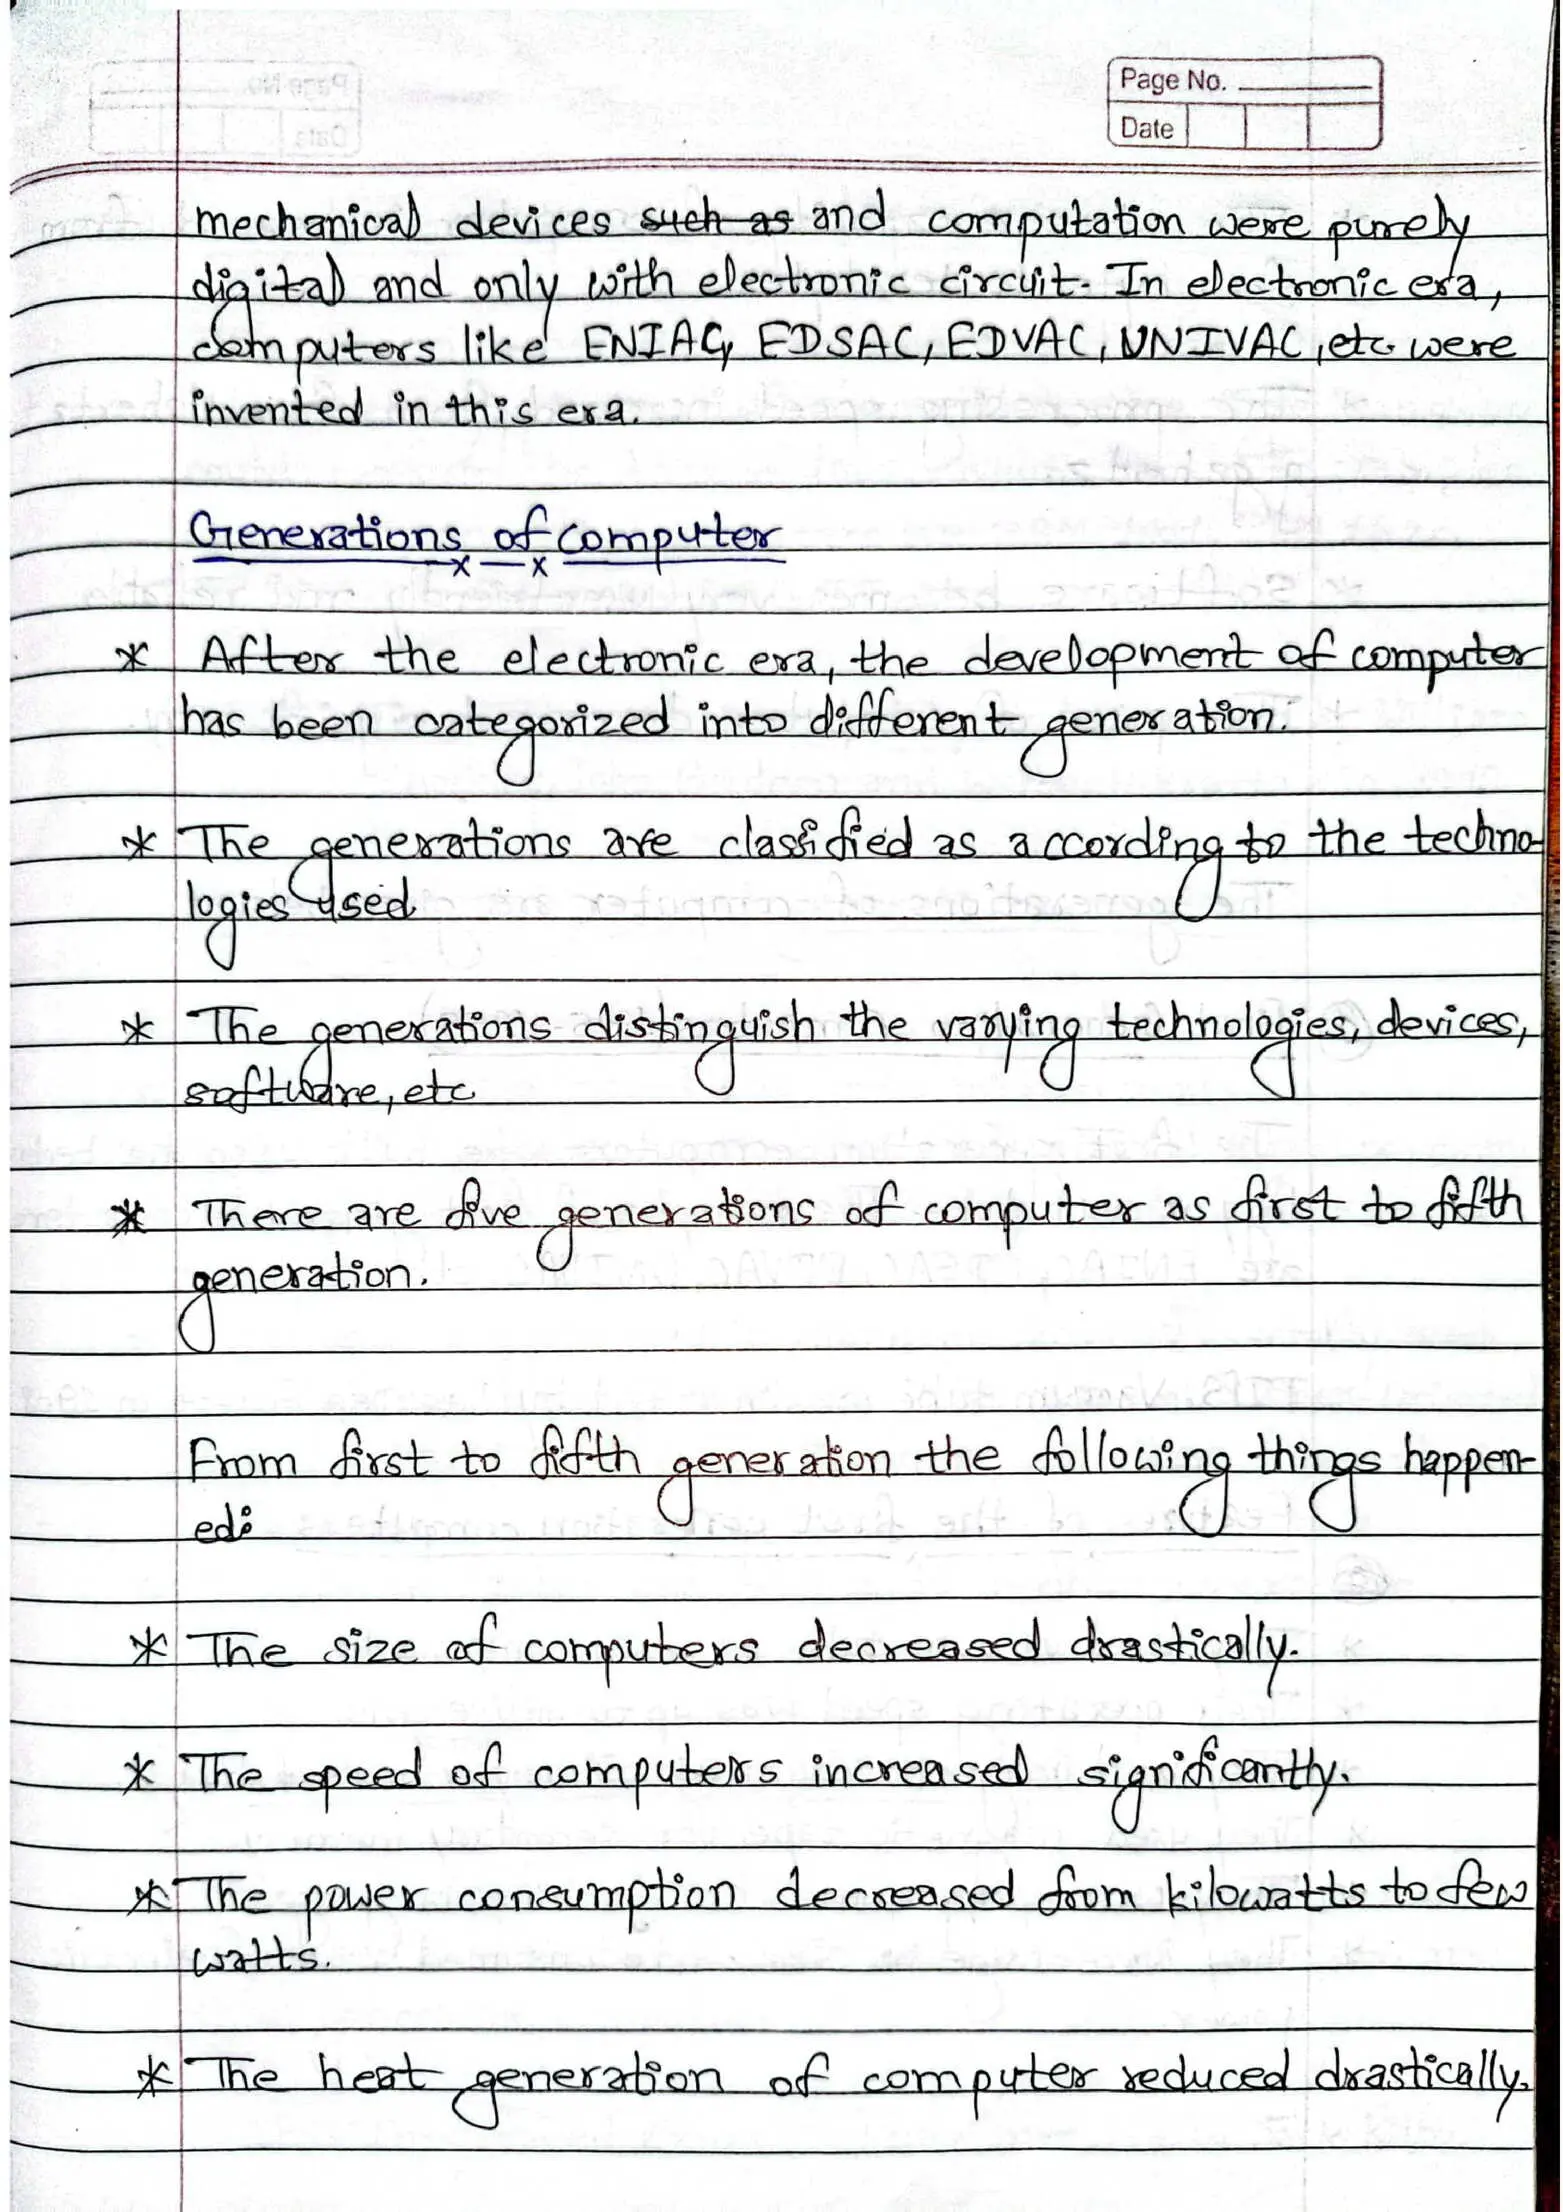 Page No.
Date
mechanical devices such as and computation were purely
digital and only with electronic circuit. In electronic era,
computers like ENIAC, EDSAC, EDVAC, UNIVAC, etc were
invented in this era.
Generations of computer
* After the electronic era, the development of computer
has been categorized into different generation.
* The generations are classified as according to the techno-
logies used.
* The generations distinguish the varying technologies, devices,
software, etc
* There are five generations of computer as first to fifth
generation.
From first to fifth generation the following things happen-
ed:
* The size of computers decreased drastically.
* The speed of computers increased significantly.
* The power consumption decreased from kilowatts to few
watts.
* The heat generation of computer reduced drastically.